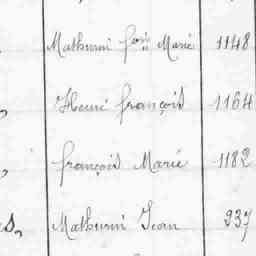 Mathurin fois Marie 1148
Henri françois 1164
françois Marie 1182
es, Mathurin Jean 937